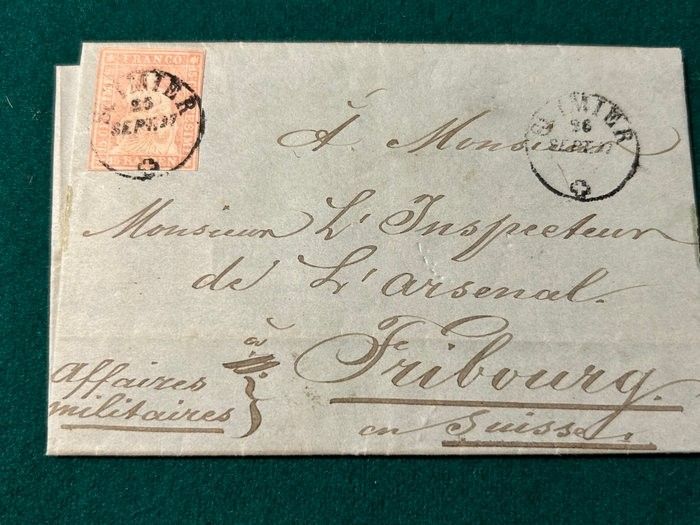 FRANCO
15 RAPPEN
ST IMIER
25
SEPT. 57
ST IMIER
26
SEPT. 57
À Monsieur
Monsieur L'Inspecteur
de L'arsenal.
à
Fribourg.
en Suisse.
Affaires
militaires